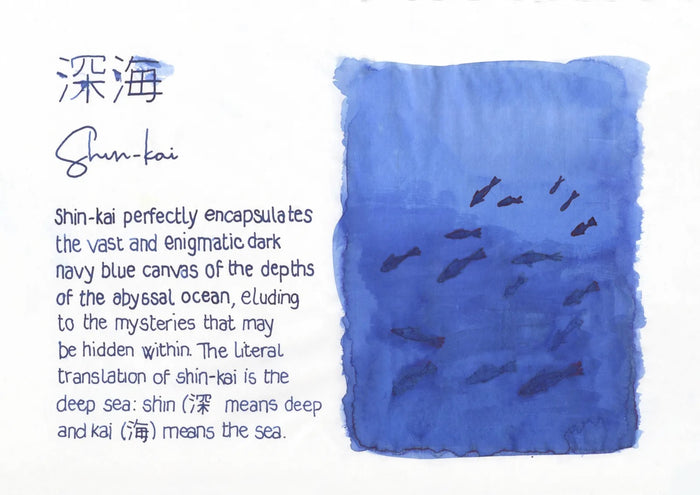 深海
Shin-kai
Shin-kai perfectly encapsulates
the vast and enigmatic dark
navy blue canvas of the depths
of the abyssal ocean, eluding
to the mysteries that may
be hidden within. The literal
translation of shin-kai is the
deep sea: shin (深 means deep
and kai (海) means the sea.